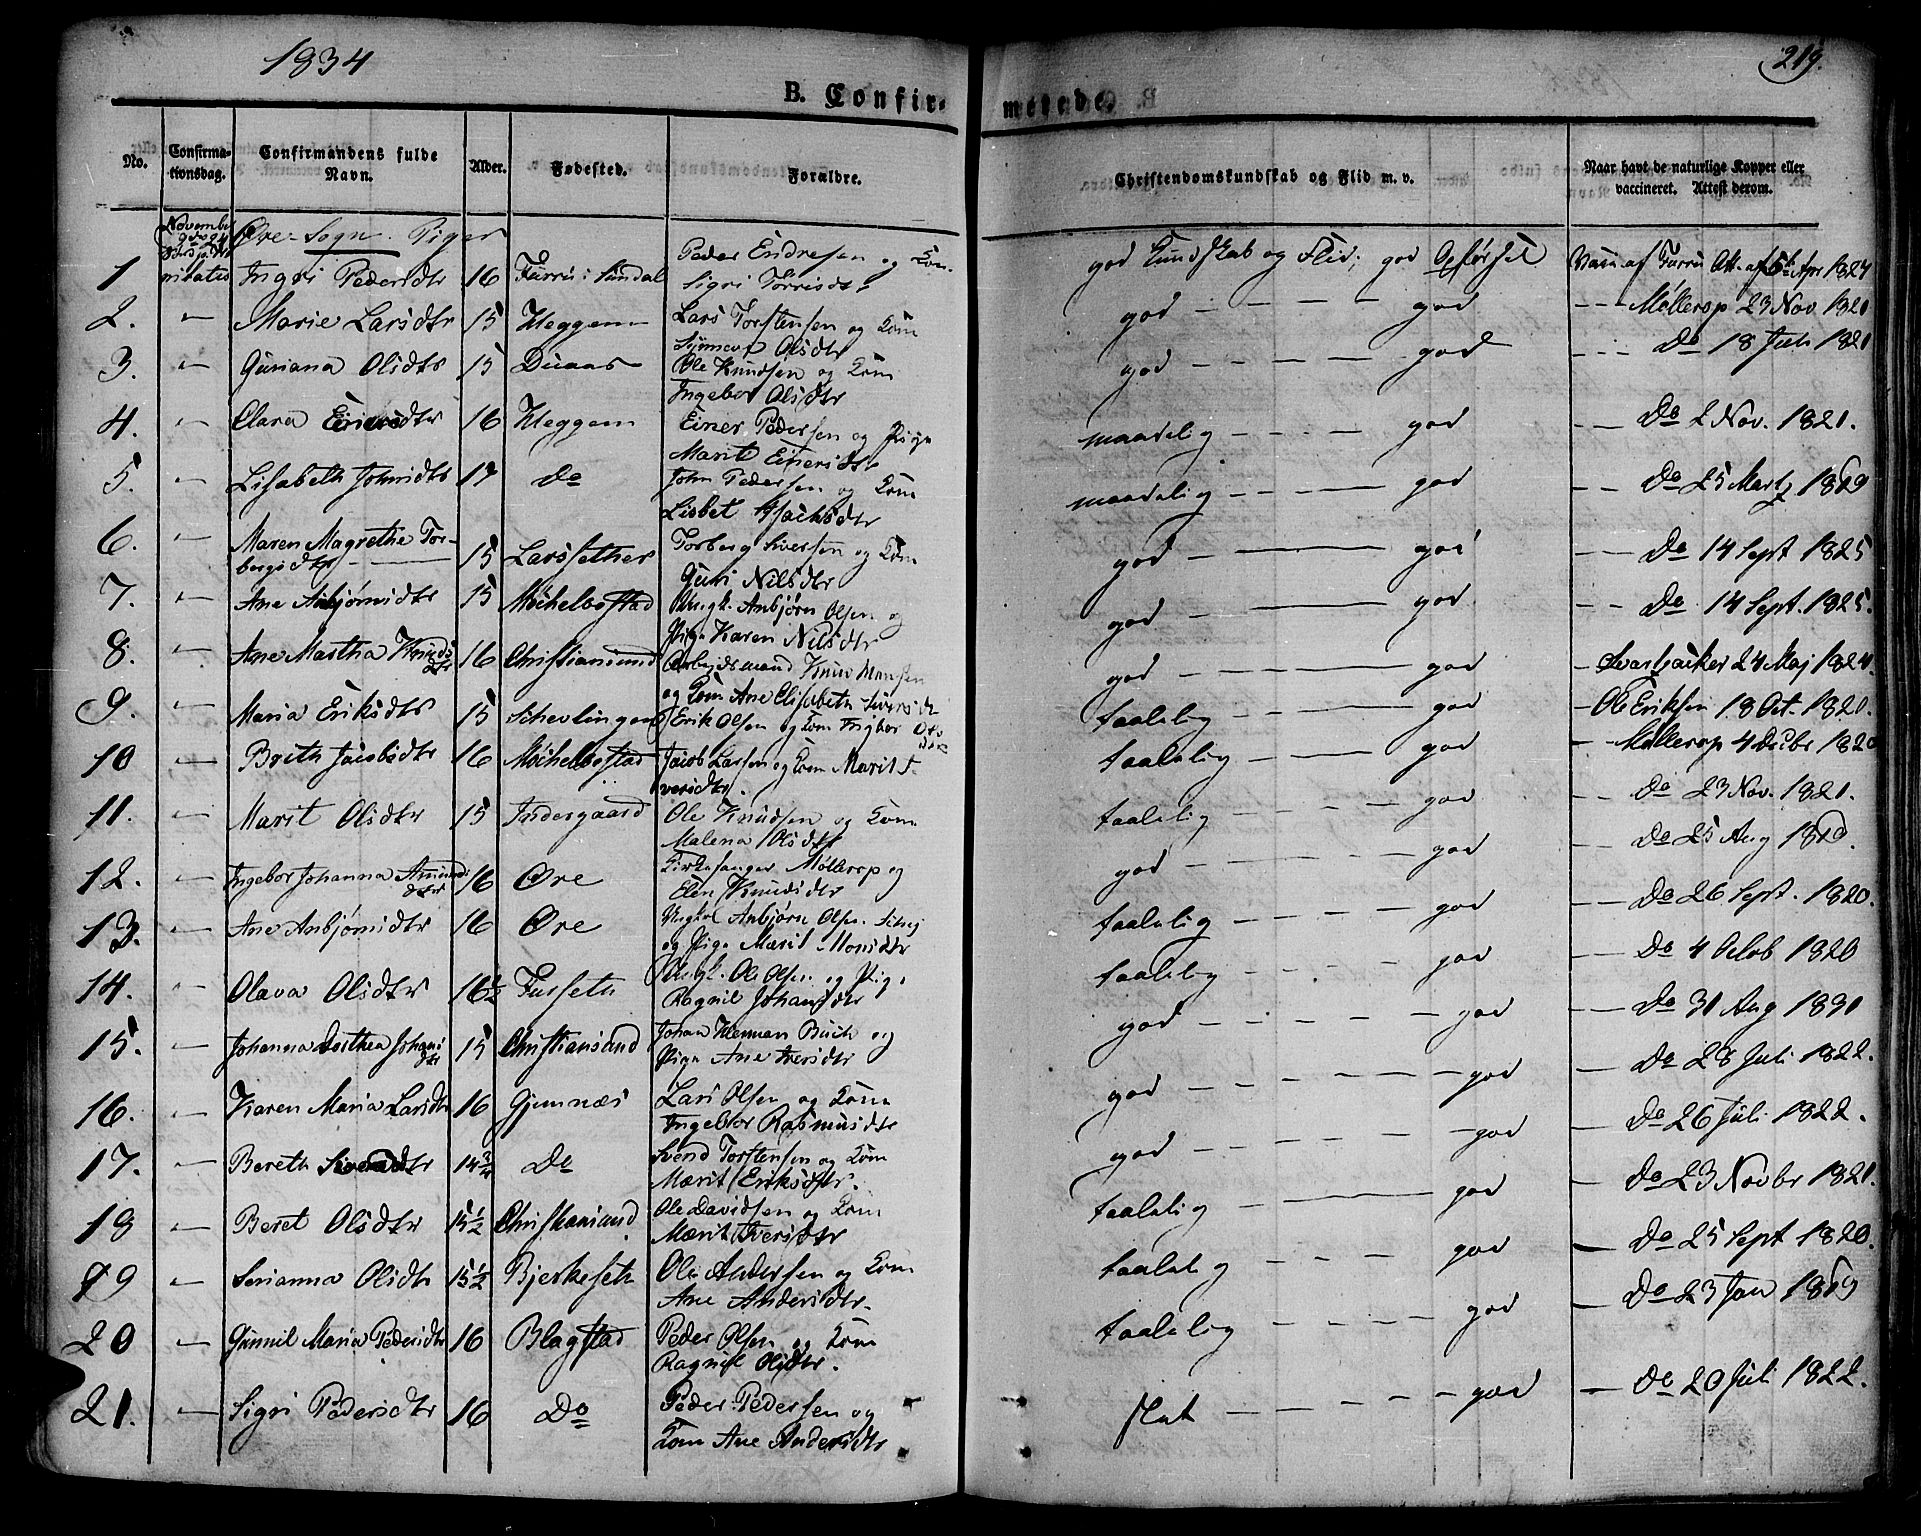 1834
219.
B. Confir-
merede.
No.
Confirma-
tionsdag.
Confirmandens fulde
Navn.
Alder.
Fødested.
Forældre.
Christendomskundskab og Flid m. v.
Naar havt de naturlige Kopper eller
vaccineret. Attest derom.
Novembr
Øre-Sogn. Piger
Peder Endresen og Kon
1 Ingri Pedersdtr 16 Furru i Sundal god Kundskab og Flid; god Opførsel Vacc. af Furru Att. af 5te Apr 1824
Sigri Torrisdtr
2. - Marie Larsdtr 15 Heggem Lars Torstensen og Kone god - - - god - - - Møllerop 23 Nov. 1821
Olsdtr
3. - Guriana Olsdtr 15 Duaas Ole Knudsen og Kone god - - - god - - - Do 18 Juli 1821
Ingebor Olsdtr
4. - Clara 16 Heggem Einer Pedersen og Pige maadelig - - - god - - Do 2 Nov. 1821.
Marit Einersdtr
5. - Lisabeth Johnsdtr 17 Do John Pedersen og Kone maadelig - - - god - - Do 25 Martz 1819
Lisbet
6. - Maren Magrethe Tor-
bergsdtr 15 Larssether Torberg Sivertsen og Kone god - - god - - Do 14 Sept 1825
Guri Nilsdtr
7. - Ane Anbjørnsdtr 15 Møchelbostad Ungk. Anbjørn Olsen og god - - god - - Do 14 Sept. 1825.
Pige Karen Nilsdtr
8. - Ane Martha Knuds
dtr 16 Christiansund Arbejdsmand Knud Monsen god - - god - Svartbakker 24 Maj 1824.
og Kone Ane Elisabeth Sivers dtr
9. - Maria Eriksdtr 15 Schevlingen Erik Olsen og Kone Ingbor Ols
dtr taalelig - - god - Ole Eriksen 18 Oct. 1821.
10 - Brith Jacobsdtr 16 Møchelbostad Jacob Larsen og Kone Marit I-
versdtr. taalelig - - - god - Møllerop 4 Decbr 1820
11. - Marit Olsdtr 15 Indergaard Ole Knudsen og Kone taalelig - - - god - - Do 23 Nov. 1821.
Malena Olsdtr
12. - Ingebor Johanna Amunds
dtr 16 Øre Kirkesanger Møllerop og god - - - god - - Do 25 Aug 1819.
Elen Knudsdtr
13. - Ane Anbjørnsdtr 16 Øre Ungkal Anbjørn Olsen taalelig - - - god - - Do 26 Sept. 1820.
og Pige Marit Monsdtr
14. - Olava Olsdtr 16½ Furseth Ungk. Ole Olsen og Pige taalelig - - - god - - Do 4 Octob 1820
Ragnil Johansdtr
15. - Johanna Dorthea Johans
dtr 15 Christiansund Johan Herman Buch og god - - - god - - Do 31 Aug 1831
Pige Ane Iversdtr
16. - Karen Maria Larsdtr 16 Gjemnæs Lars Olsen og Kone god - - - god - - Do 28 Juli 1822.
Ingebor Rasmusdtr
17. - Bereth 14¾ Do Svend Torstensen og Kone god - - - god - - Do 26 Juli 1822.
Marit Eriksdtr.
18 - Beret Olsdtr 15½ Christiansund Ole Davidsen og Kone taalelig - - god - Do 23 Novbr 1821.
Marit Iversdtr
19 - Serianna Olsdtr 15½ Bjerkeseth Ole Andersen og Kone taalelig - - - god - Do 25 Sept 1820.
Ane Andersdtr.
20 - Gunnil Maria Pedersdtr 16 Blagstad Peder Olsen og Kone taalelig - - - god - Do 23 Jan 1819
Ragnil Olsdtr.
21. - Sigri Pedersdtr 16 Do Peder Pedersen og slet - - - god - Do 20 Juli 1822.
Kone Ane Andersdtr